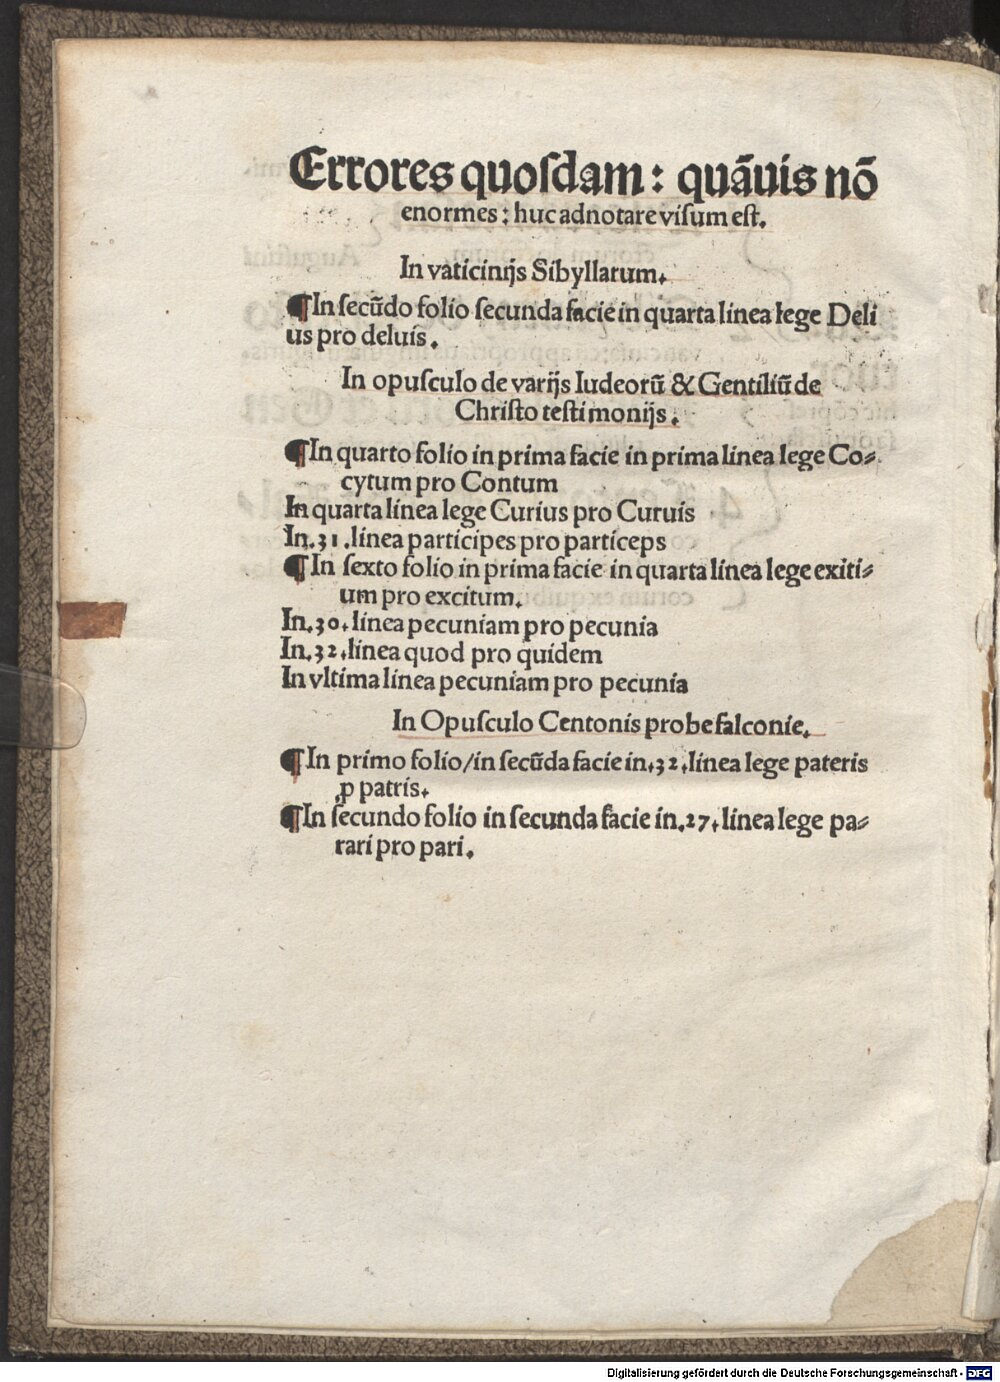 Errores quoſdam: quāuis nō
enormes: huc adnotare viſum eſt.
In vaticinijs Sibyllarum.
¶In ſecūdo folio ſecunda facie in quarta linea lege Deli
us pro deluis.
In opuſculo de varijs Iudeorū & Gentiliū de
Chriſto teſtimonijs.
¶In quarto folio in prima facie in prima linea lege Co⸗
cytum pro Contum
In quarta linea lege Curius pro Curuis
In.31.linea participes pro particeps
¶In ſexto folio in prima facie in quarta linea lege exiti⸗
um pro excitum.
In.30.linea pecuniam pro pecunia
In.32.linea quod pro quidem
In vltima linea pecuniam pro pecunia
In Opuſculo Centonis probe falconie.
¶In primo folio/in ſecūda facie in.32.linea lege pateris
ꝓ patris.
¶In ſecundo folio in ſecunda facie in.27.linea lege pa⸗
rari pro pari.
Digitalisierung gefördert durch die Deutsche Forschungsgemeinschaft - DFG